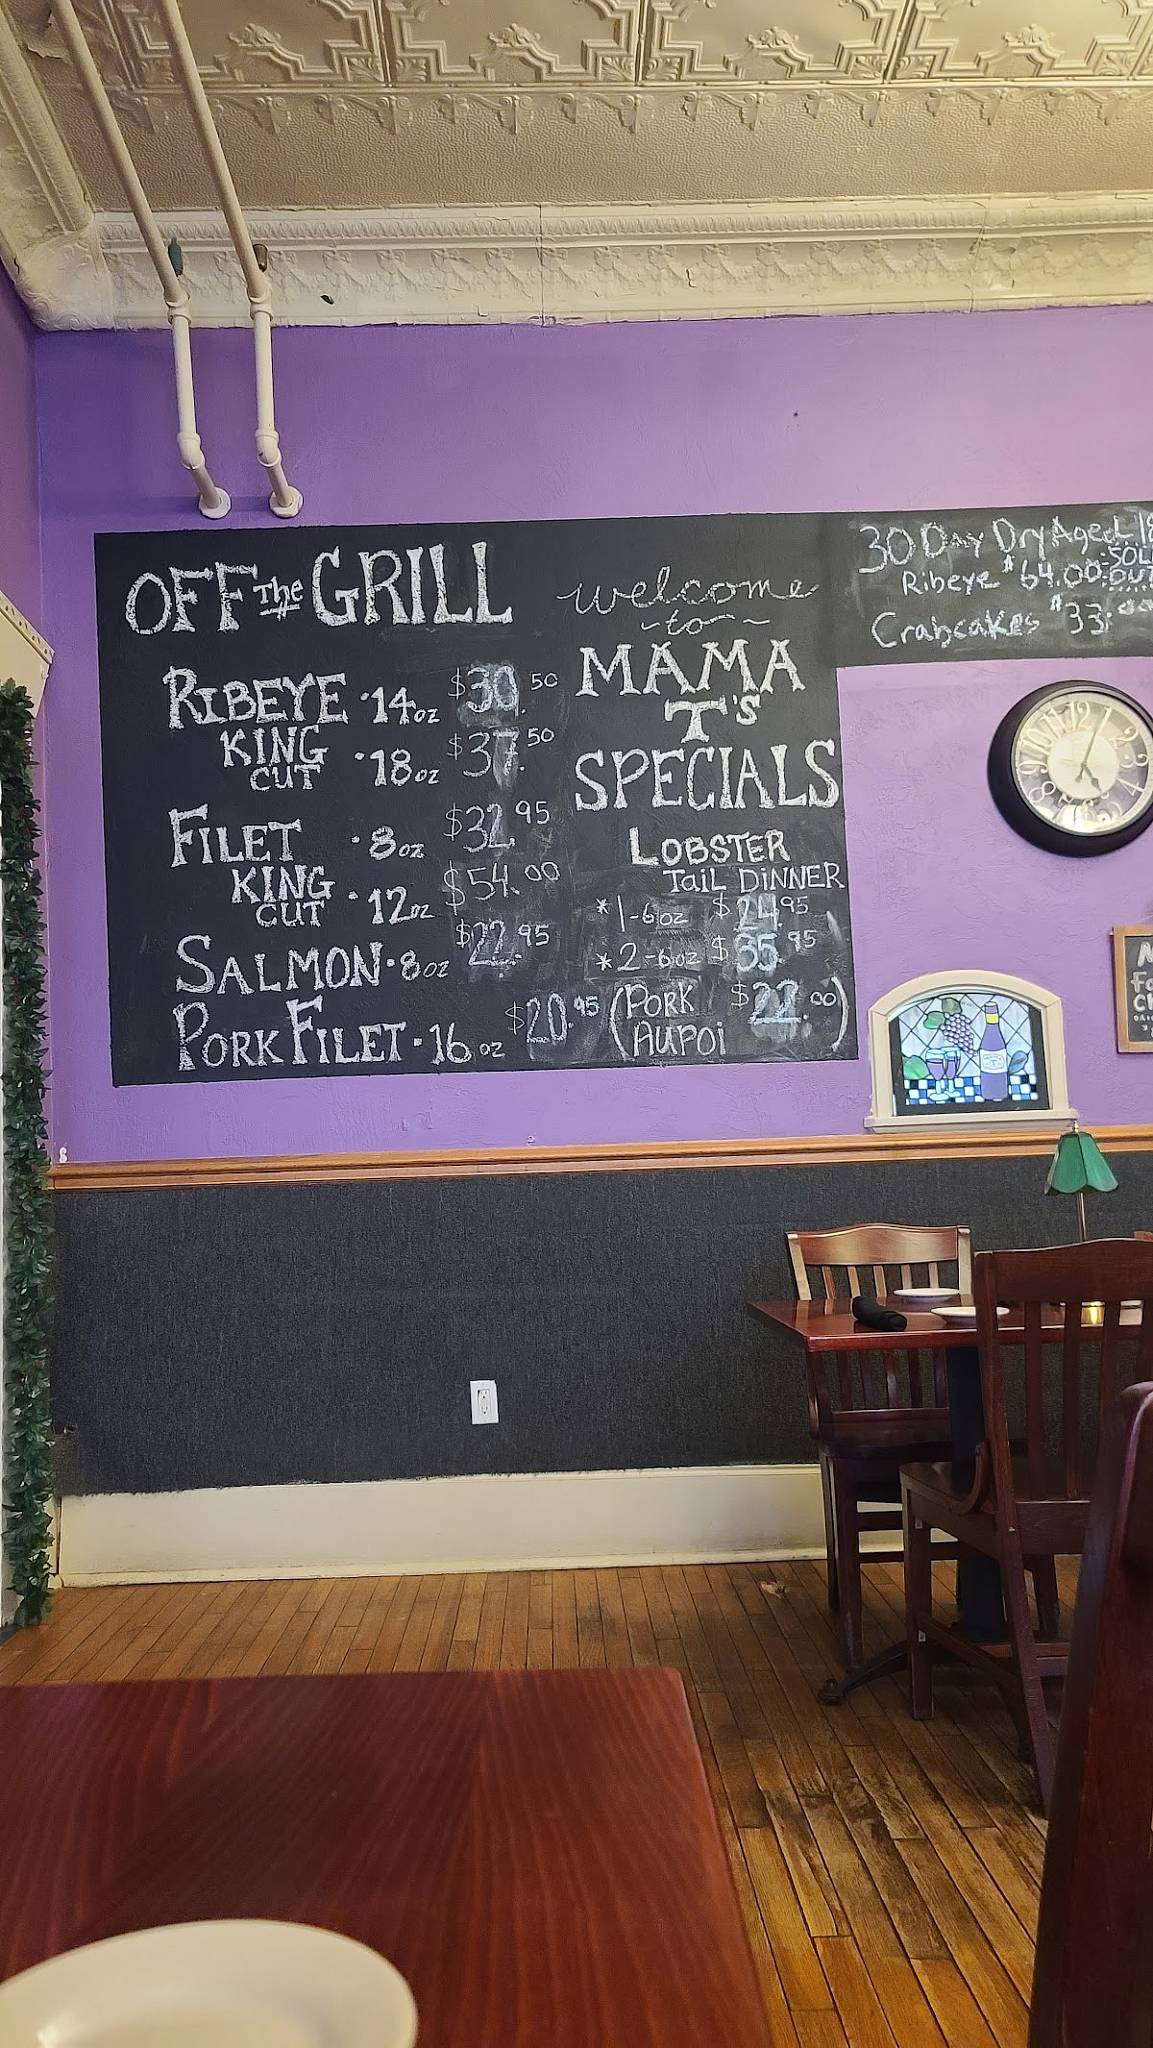 OFF The GRILL
RIBEYE · 14oz $30.50
KING CUT · 18oz $37.50
FILET · 8oz $32.95
KING CUT · 12oz $54.00
SALMON · 8oz $22.95
PORK FILET · 16 oz $20.95
welcome
~to~
MAMA
T's
SPECIALS
LOBSTER
TAIL DINNER
* 1-6oz $24.95
* 2-6oz $35.95
(PORK $22.00)
AUPOi
30 Day Dry Aged
Ribeye $64.00 OUT
Crabcakes $33.00
12 1 2 3 4 8 9 10 11